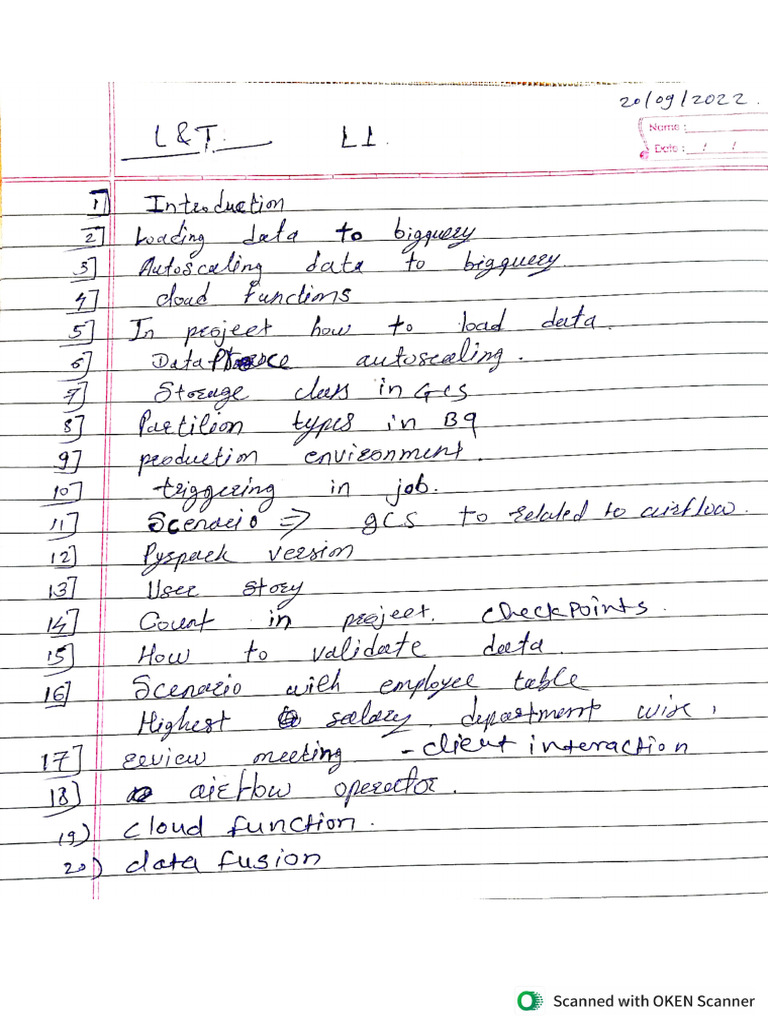 20/09/2022.
L&T. L1.
Name :
Date : / /
1] Introduction
2] Loading data to bigquery
3] Autoscaling data to bigquery.
4] cloud functions
5] In project how to load data.
6] Data autoscaling.
7] Storage class in GCS
8] Partition types in BQ
9] production environment.
10] triggering in job.
11] Scenario => gcs to related to airflow.
12] Pyspark version
13] User story
14] Count in project. checkpoints.
15] How to validate data.
16] Scenario with employee table
Highest salary department wise,
17] review meeting - client interaction
18] airflow operator.
19) cloud function.
20) data fusion
Scanned with OKEN Scanner